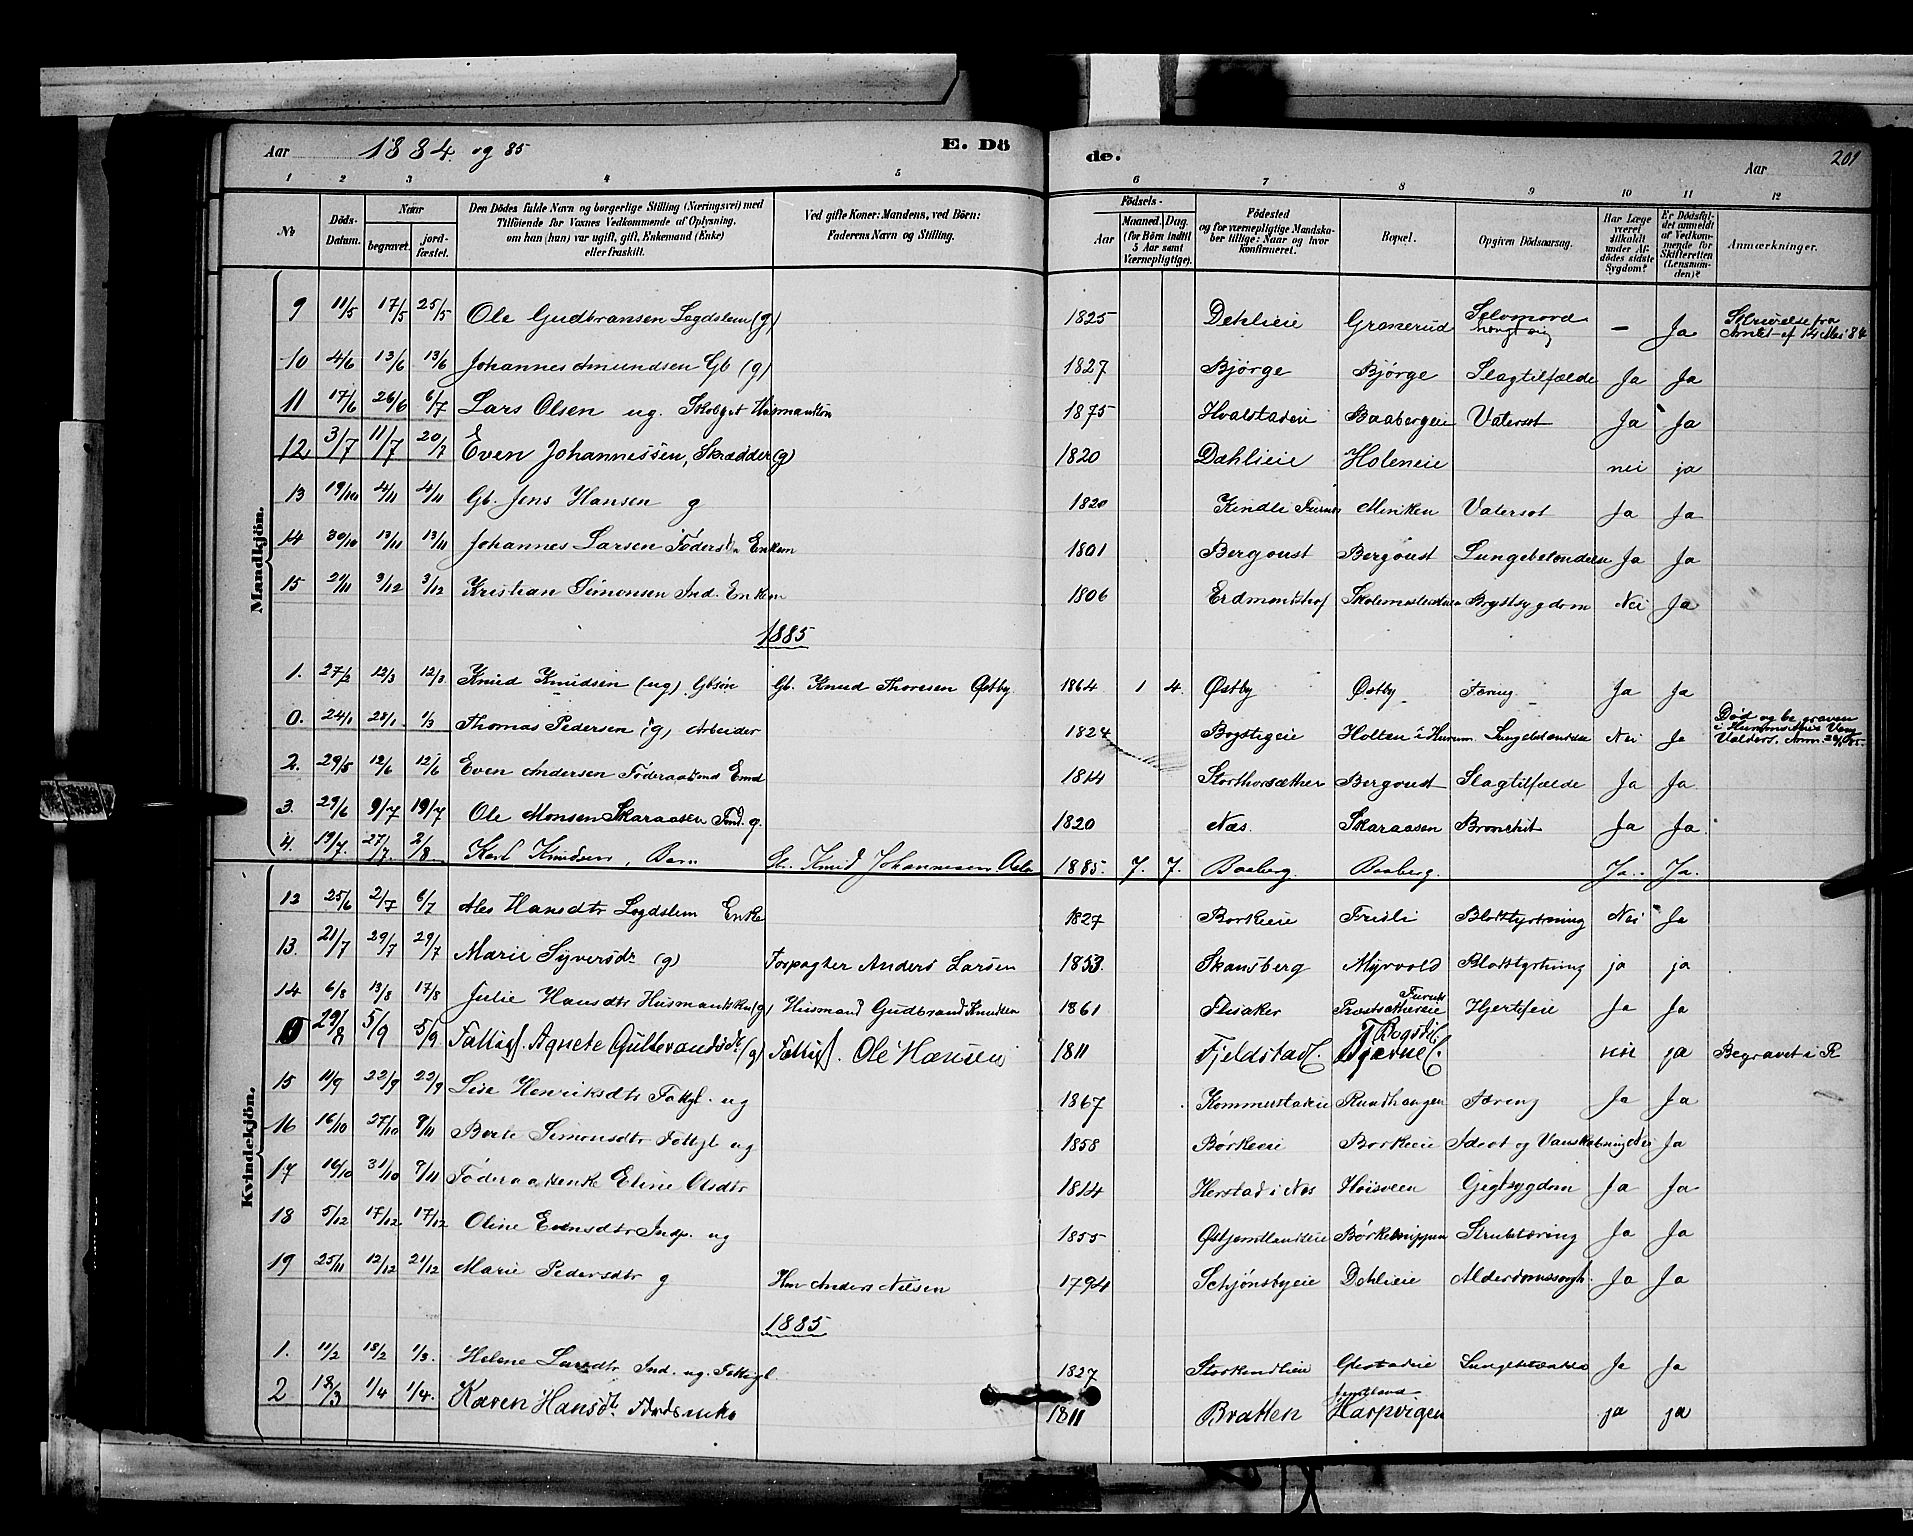 Aar 1884 og 85 E. Dö de. Aar 201
1 2 3 4 5 6 7 8 9 10 11 12
No Döds-Datum. Naar begravet. jordfæstet. Den Dödes fulde Navn og borgerlige Stilling (Næringsvei) med Tilföiende for Voxnes Vedkommende af Oplysning, om han (hun) var ugift, gift, Enkemand (Enke) eller fraskilt. Ved gifte Koner: Mandens, ved Börn: Faderens Navn og Stilling. Födsels- Aar Maaned. Dag. (for Börn indtil 5 Aar samt Værnepligtige). Födested og for værnepligtige Mandskaber tillige: Naar og hvor konfirmeret. Bopæl. Opgiven Dödsaarsag. Har Læge været tilkaldt under Afdödes sidste Sygdom? Er Dödsfaldet anmeldt af Vedkommende for Skifteretten (Lensmanden)? Anmærkninger.
Mandkjön.
9 11/5 17/5 25/5 Ole Gudbransen Løgdslem (g) 1825 Dehlieie Granerud Selvmord hængt sig — Ja Skrivelse fra Amtet af 14 Mai 84
10 4/6 13/6 13/6 Johannes Amundsen Gb (g) 1827 Bjørge Bjørge Slagtilfælde Ja Ja
11 17/6 26/6 6/7 Lars Olsen ug. 1875 Hvalstadeie Baabergeie Vatersot Ja Ja
12 3/7 11/7 20/7 Even Johannessen, Skrædder (g) 1820 Dæhlieie Holeneie nei ja
13 19/10 4/11 4/11 Gb. Jens Hansen g 1820 Kindli Furnes Menken Vatersot Ja Ja
14 30/10 13/11 13/11 Johannes Larsen Føders Enkem 1801 Bergoust Bergoust Lungebetændelse Ja Ja
15 29/11 3/12 3/12 Kristian Simonsen Ind. Enkem 1806 Erdmandshof Brystsygdom Nei Ja
1885
1. 27/2 12/3 12/3 Knud Knudsen (ug) Gbsøn Gb. Knud Thoresen Østby 1864 1 4. Østby Østby Tæring Ja Ja
0. 24/1 28/1 1/3 Thomas Pedersen (g) Arbeider 1824 Bogstigeie Holten i Hurum Lungebetændelse Nei Ja Død og begraven i Valders. Anm.
2. 29/5 12/6 12/6 Even Andersen Føderaadsmd Emd 1814 Storthorsæther Bergoust Slagtilfælde Ja Ja.
3. 29/6 9/7 19/7 Ole Monsen Skaraasen Ind. g. 1820 Næs. Skaraasen Bronchit Ja Ja.
4. 19/7. 27/7. 2/8 Karl Knudsen, Barn Gb. Knud Johannesen 1885. 7. 7. Baaberg. Baaberg. Ja. Ja.
Kvindekjön.
12 25/6 2/7 6/7 Hansdtr Løgdslem Enke 1827 Borkeeie Fridli Blodstyrtning Nei Ja
13. 21/7 29/7 29/7 Marie Syversdr (g) Forpagter Anders Larsen 1853. Skansberg Myrvold Blodstyrtning ja ja
14 6/8 13/8 17/8 Julie Hansdtr Husmandskone (g) Husmand Gudbrand Knudsen 1861 Flisaker Furnes Hjertefeil Ja Ja
0 29/8 5/9 5/9 Fattigl. Agnete Gulbrandsdtr (g) Fattigl. Ole Hansen 1811 Fjeldstadl. nei ja Begravet i R
15 11/9 22/9 23/9 Lise Henriksdtr Fattgl. ug 1867 Kommerstadeie Rundhaugen Tæring Ja Ja
16 16/10 27/10 9/11 Berte Simonsdtr Fattgl ug 1858 Børkeeie Borkeeie Idiot og Nei Ja
17 16/10 31/10 9/11 Føderaadsenke Eline Olsdtr 1814 Herstad i Næs Høisveen Gigtsygdom Ja Ja
18 5/12 17/12 17/12 Oline Evensdtr Indp. ug 1855 Børkesnippen Strubetæring Ja Ja
19 25/11 12/12 21/12 Marie Pedersdtr g Hm Anders Nilsen 1794 Schjønsbyeie Dehlieie Alderdomssvagh. Ja Ja
1885
1. 11/2 18/2 1/3. Helene Larsdtr Ind. ug. Fattigl 1827 Ja Ja
2 18/3 1/4 1/4. Karen Hansdt 1811 Bratten Jemtland Harpvigen ja ja